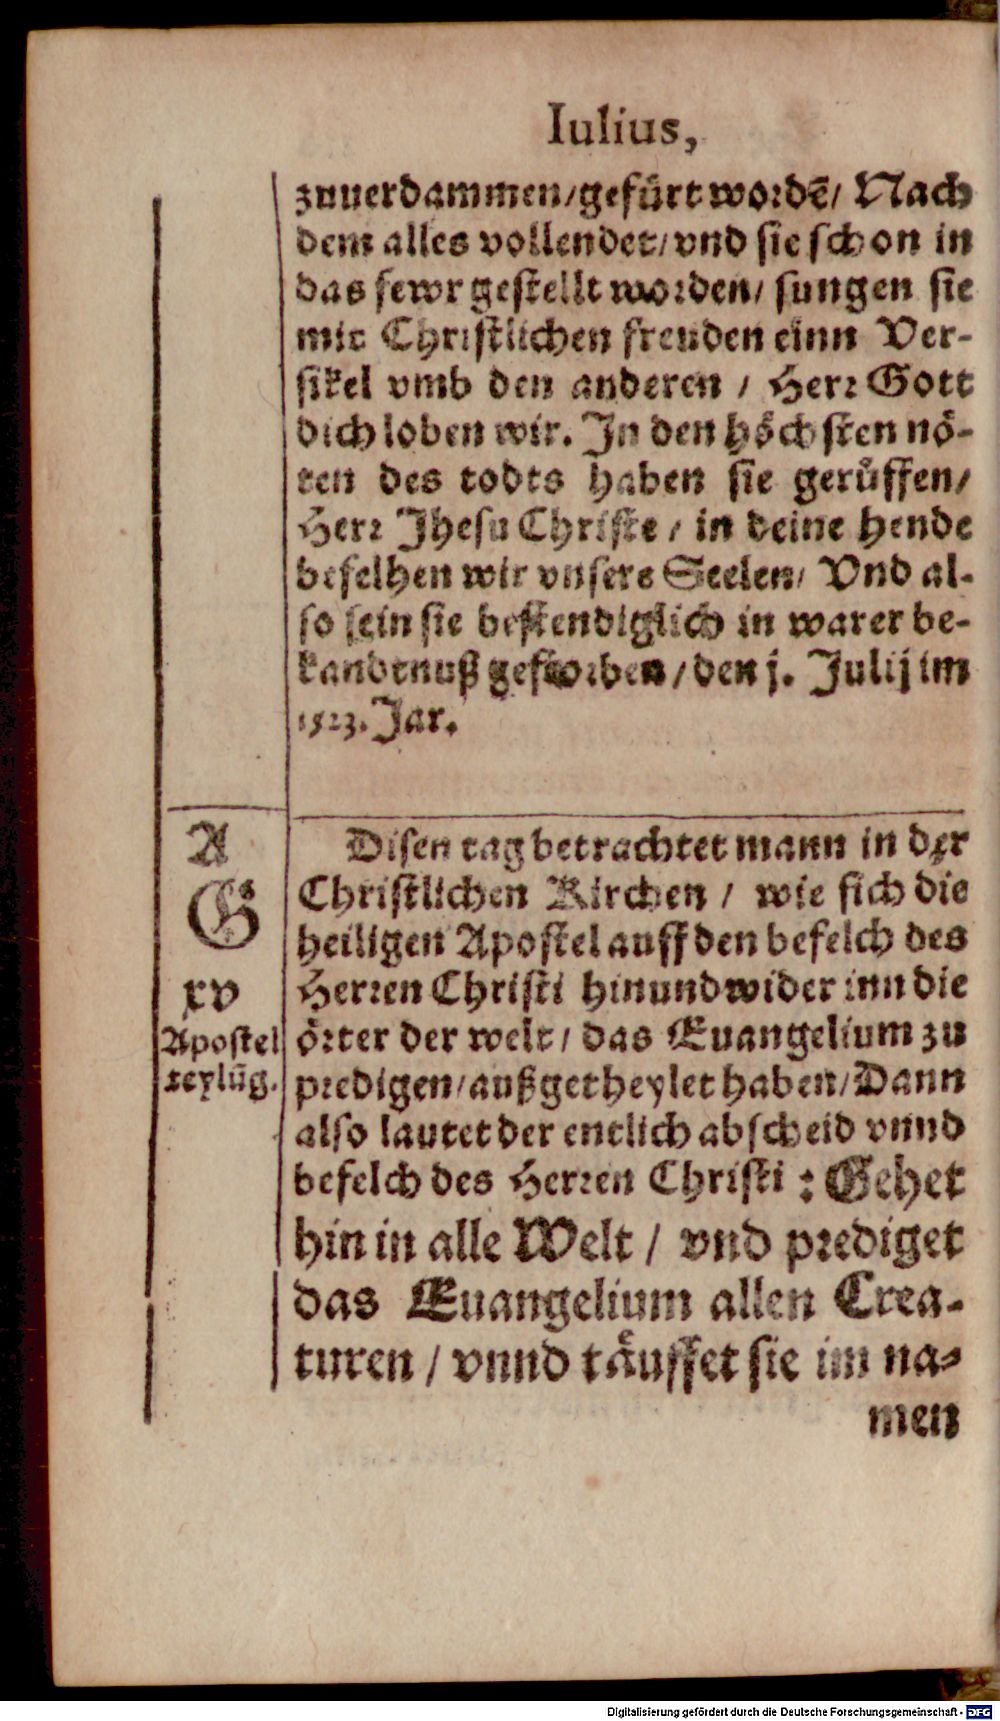 Iulius,
zuuerdammen/gefürt wordē/ Nach
dem alles vollendet/vnd sie schon in
das fewr gestellt worden/ sungen sie
mit Christlichen freuden einn Ver-
sikel vmb den anderen / Herr Gott
dich loben wir. In den höchsten nö-
ten des todts haben sie gerůffen/
Herr Jhesu Christe / in deine hende
befelhen wir vnsere Seelen/ Vnd al-
so sein sie bestendiglich in warer be-
kandtnuß gestorben/den j. Julij im
1523. Jar.
A
G
xv
Apostel
teylūg.
Disen tag betrachtet mann in der
Christlichen Kirchen / wie sich die
heiligen Apostel auff den befelch des
Herren Christi hinundwider inn die
örter der welt/ das Euangelium zu
predigen/außgetheylet haben/Dann
also lautet der entlich abscheid vnnd
befelch des Herren Christi : Gehet
hin in alle Welt / vnd prediget
das Euangelium allen Crea-
turen / vnnd täuffet sie im na-
men
Digitalisierung gefördert durch die Deutsche Forschungsgemeinschaft - DFG